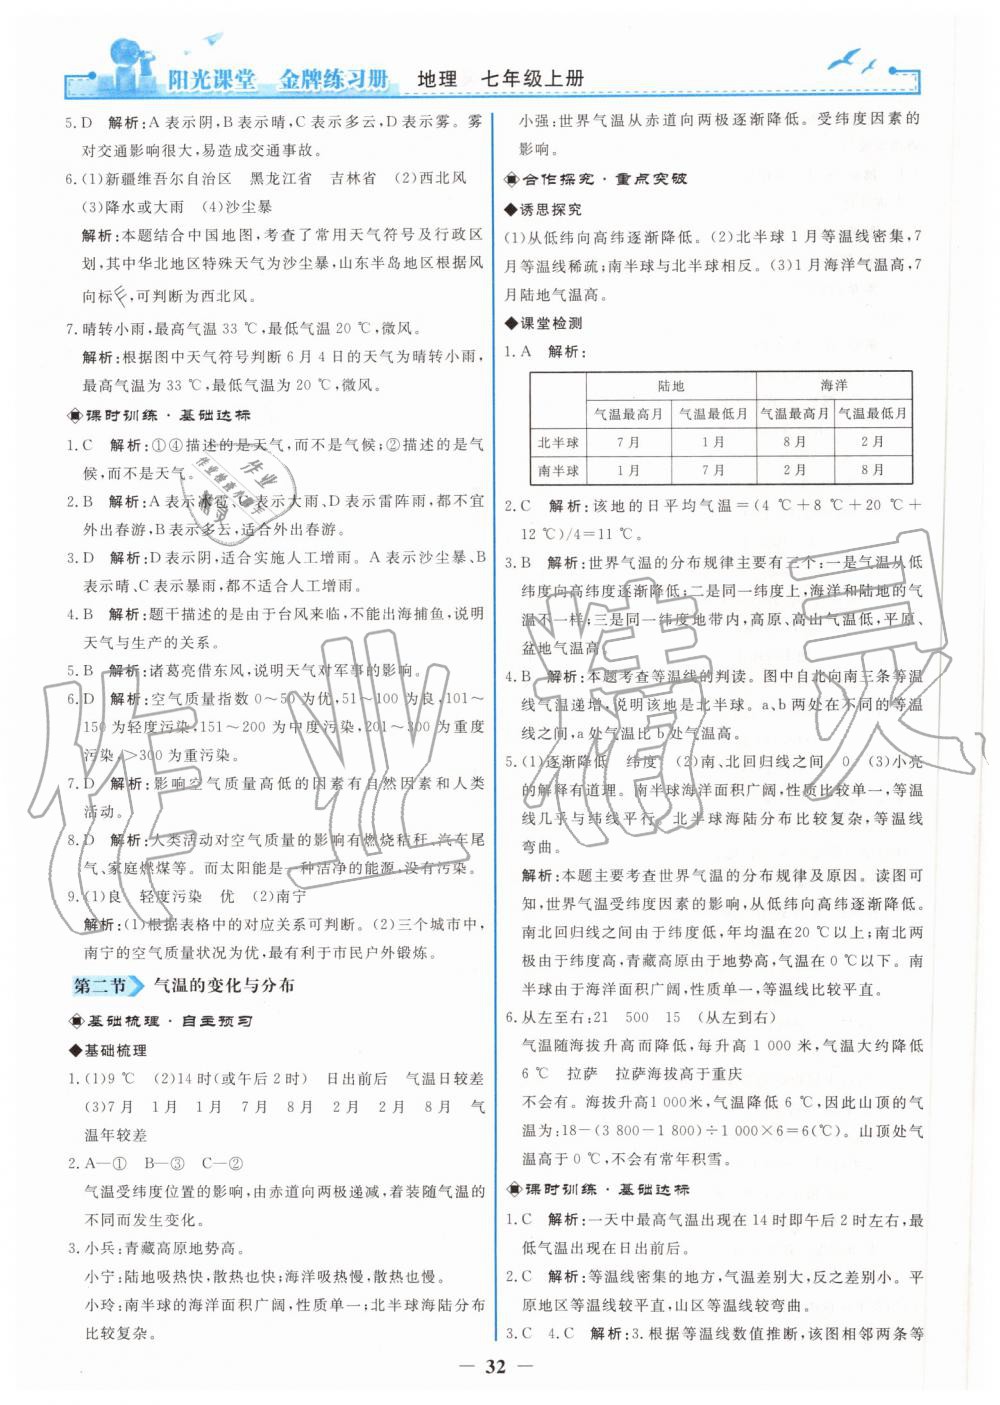 阳光课堂 金牌练习册 地理 七年级上册
5. D 解析:A 表示阴,B 表示晴,C 表示多云,D 表示雾。雾
对交通影响很大,易造成交通事故。
6. (1)新疆维吾尔自治区 黑龙江省 吉林省 (2)西北风
(3)降水或大雨 (4)沙尘暴
解析:本题结合中国地图,考查了常用天气符号及行政区
划,其中华北地区特殊天气为沙尘暴,山东半岛地区根据风
向标,可判断为西北风。
7. 晴转小雨,最高气温 33 ℃,最低气温 20 ℃,微风。
解析:根据图中天气符号判断 6 月 4 日的天气为晴转小雨,
最高气温为 33 ℃,最低气温为 20 ℃,微风。
课时训练·基础达标
1. C 解析:①④描述的是天气,而不是气候;②描述的是气
候,而不是天气。
2. B 解析:A 表示冰雹、C 表示大雨、D 表示雷阵雨,都不宜
外出春游;B 表示多云,适合外出春游。
3. D 解析:D表示阴,适合实施人工增雨。A 表示沙尘暴、B
表示晴、C 表示暴雨,都不适合人工增雨。
4. B 解析:题干描述的是由于台风来临,不能出海捕鱼,说明
天气与生产的关系。
5. B 解析:诸葛亮借东风,说明天气对军事的影响。
6. D 解析:空气质量指数 0～50 为优,51～100 为良,101～
150 为轻度污染,151～200 为中度污染,201～300 为重度
污染,>300 为重污染。
7. D 解析:影响空气质量高低的因素有自然因素和人类
活动。
8. D 解析:人类活动对空气质量的影响有燃烧秸秆、汽车尾
气、家庭燃煤等。而太阳能是一种洁净的能源,没有污染。
9. (1)良 轻度污染 优 (2)南宁
解析:(1)根据表格中的对应关系可判断。(2)三个城市中,
南宁的空气质量状况为优,最有利于市民户外锻炼。
第二节 气温的变化与分布
基础梳理·自主预习
◆基础梳理
1. (1)9 ℃ (2)14 时(或午后 2 时) 日出前后 气温日较差
(3)7 月 1 月 1 月 7 月 8 月 2 月 2 月 8 月 气
温年较差
2. A—① B—③ C—②
气温受纬度位置的影响,由赤道向两极递减,着装随气温的
不同而发生变化。
3. 小兵:青藏高原地势高。
小宁:陆地吸热快,散热也快;海洋吸热慢,散热也慢。
小玲:南半球的海洋面积广阔,性质单一;北半球海陆分布
比较复杂。
小强:世界气温从赤道向两极逐渐降低。受纬度因素的
影响。
合作探究·重点突破
◆诱思探究
(1)从低纬向高纬逐渐降低。(2)北半球 1 月等温线密集,7
月等温线稀疏;南半球与北半球相反。(3)1 月海洋气温高,7
月陆地气温高。
◆课堂检测
1. A 解析:
陆地 海洋
气温最高月 气温最低月 气温最高月 气温最低月
北半球 7 月 1 月 8 月 2 月
南半球 1 月 7 月 2 月 8 月
2. C 解析:该地的日平均气温=(4 ℃+8 ℃+20 ℃+
12 ℃)/4=11 ℃。
3. B 解析:世界气温的分布规律主要有三个:一是气温从低
纬度向高纬度逐渐降低;二是同一纬度上,海洋和陆地的气
温不一样;三是同一纬度地带内,高原、高山气温低,平原、
盆地气温高。
4. B 解析:本题考查等温线的判读。图中自北向南三条等温
线气温递增,说明该地是北半球。a、b 两处在不同的等温
线之间,a 处气温比 b 处气温高。
5. (1)逐渐降低 纬度 (2)南、北回归线之间 0 (3)小亮
的解释有道理。南半球海洋面积广阔,性质比较单一,等温
线几乎与纬线平行。北半球海陆分布比较复杂,等温线
弯曲。
解析:本题主要考查世界气温的分布规律及原因。读图可
知,世界气温受纬度因素的影响,从低纬向高纬逐渐降低。
南北回归线之间由于纬度低,年均温在20 ℃以上;南极洲
由于纬度高,青藏高原由于海拔高,气温在 0 ℃以下。南
半球由于海洋面积广阔,性质单一,等温线比较平直。
6. 从左至右:21 500 15 (从左到右)
气温随海拔升高而降低,每升高 1 000 米,气温大约降低
6 ℃ 拉萨 拉萨海拔高于重庆
不会有。海拔升高1 000米,气温降低 6 ℃,因此山顶的气
温为:18-(3 800-1 800)÷1 000×6=6(℃)。山顶处气
温高于 0 ℃,不会有常年积雪。
课时训练·基础达标
1. C 解析:一天中最高气温出现在 14 时即午后 2 时左右,最
低气温出现在日出前后。
2. C 解析:等温线密集的地方,气温差别大,反之差别小。平
原地区等温线较平直,山区等温线较弯曲。
3. C 4. C 解析:3. 根据等温线数值推断,该图相邻两条等
— 32 —
作业精灵